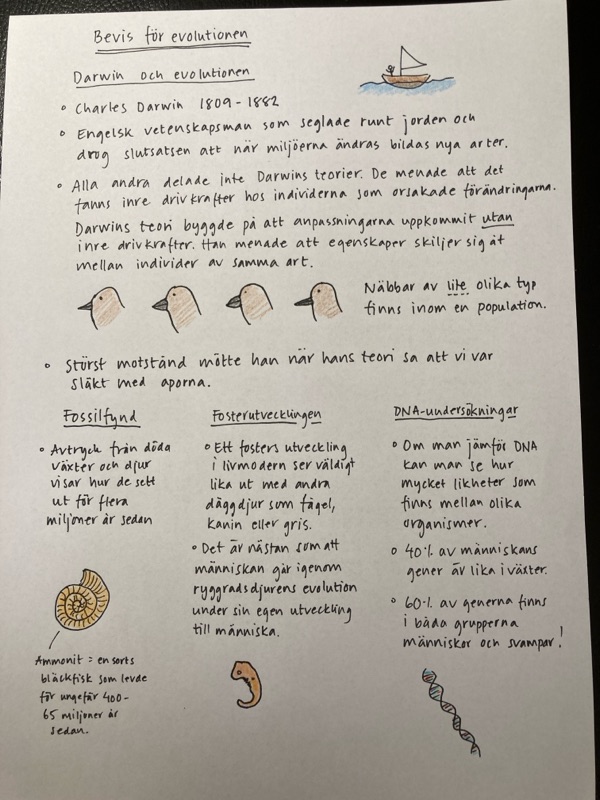 Bevis för evolutionen
Darwin och evolutionen
Charles Darwin 1809-1882
Engelsk vetenskapsman som seglade runt jorden och
drog slutsatsen att när miljöerna ändras bildas nya arter.
Alla andra delade inte Darwins teorier. De menade att det
fanns inre drivkrafter hos individerna som orsakade förändringarna.
Darwins teori byggde på att anpassningarna uppkommit utan
inre drivkrafter. Han menade att egenskaper skiljer sig åt
mellan individer av samma art.
Näbbar av lite olika typ
finns inom en population.
Störst motstånd mötte han när hans teori sa att vi var
släkt med aporna.
Fossilfynd
Avtryck från döda
växter och djur
visar hur de sett
ut för flera
miljoner år sedan
Ammonit = en sorts
bläckfisk som levde
för ungefär 400-
65 miljoner år
sedan.
Fosterutvecklingen
Ett fosters utveckling
i livmodern ser väldigt
lika ut med andra
däggdjur som fågel,
kanin eller gris.
Det är nästan som att
människan går igenom
ryggradsdjurens evolution
under sin egen utveckling
till människa.
DNA-undersökningar
Om man jämför DNA
kan man se hur
mycket likheter som
finns mellan olika
organismer.
40% av människans
gener är lika i växter.
60% av generna finns
i båda grupperna
människor och svampar!